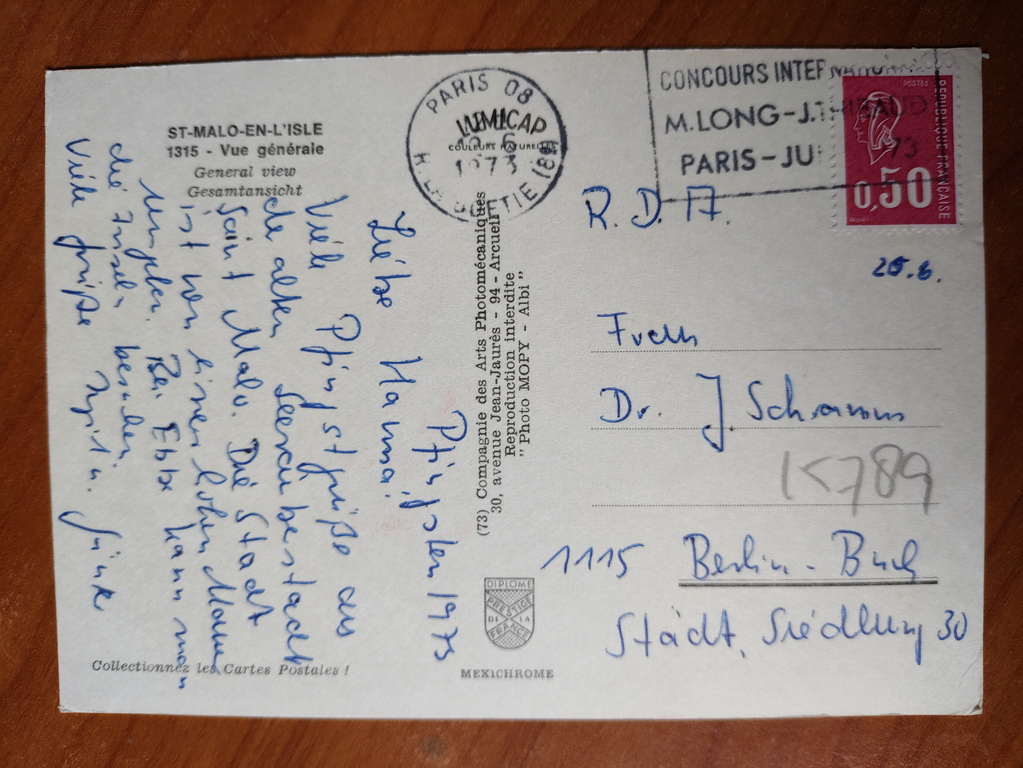 ST-MALO-EN-L'ISLE
1315 - Vue générale
General view
Gesamtansicht
Pfingsten 1973
Liebe Hanna!
Viele Pfingstgrüße aus
de alten Seeräuberstadt
Saint Malo. Die Stadt
ist von einer hohen Mauer
umgeben. Bei Ebbe kann man
die Inseln besuchen.
Viele Grüße
Collectionnez les Cartes Postales !
(73) Compagnie des Arts Photomécaniques
30, avenue Jean-Jaurès - 94 - Arcueil
Reproduction interdite
" Photo MOPY - Albi "
LUMICAP
COULEURS NATURELLES
DIPLOME
PRESTIGE
DE LA
FRANCE
MEXICHROME
PARIS 08
1973
R. LA BOETIE (8E)
CONCOURS INTERNATIONAL
M.LONG-J.THIBAUD
PARIS-JUIN 73
POSTES
REPUBLIQUE FRANCAISE
0,50
R. D. A.
20.6.
Frau
Dr. J. Schramm
K789
1115 Berlin-Buch
Städt. Siedlung 30